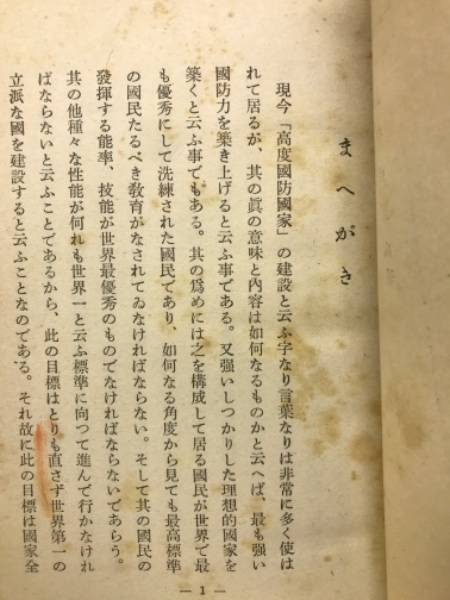 まへがき
現今「高度國防國家」の建設と云ふ字なり言葉なりは非常に多く使は
れて居るが、其の眞の意味と內容は如何なるものかと云へば、最も强い
國防力を築き上げると云ふ事である。又强いしつかりした理想的國家を
築くと云ふ事でもある。其の爲めには之を構成して居る國民が世界で最
も優秀にして洗練された國民であり、如何なる角度から見ても最高標準
の國民たるべき敎育がなされてゐなければならない。そして其の國民の
發揮する能率、技能が世界最優秀のものでなければならないであらう。
其の他種々な性能が何れも世界一と云ふ標準に向つて進んで行かなけれ
ばならないと云ふことであるから、此の目標はとりも直さず世界第一の
立派な國を建設すると云ふことなのである。それ故に此の目標は國家全
— 1 —